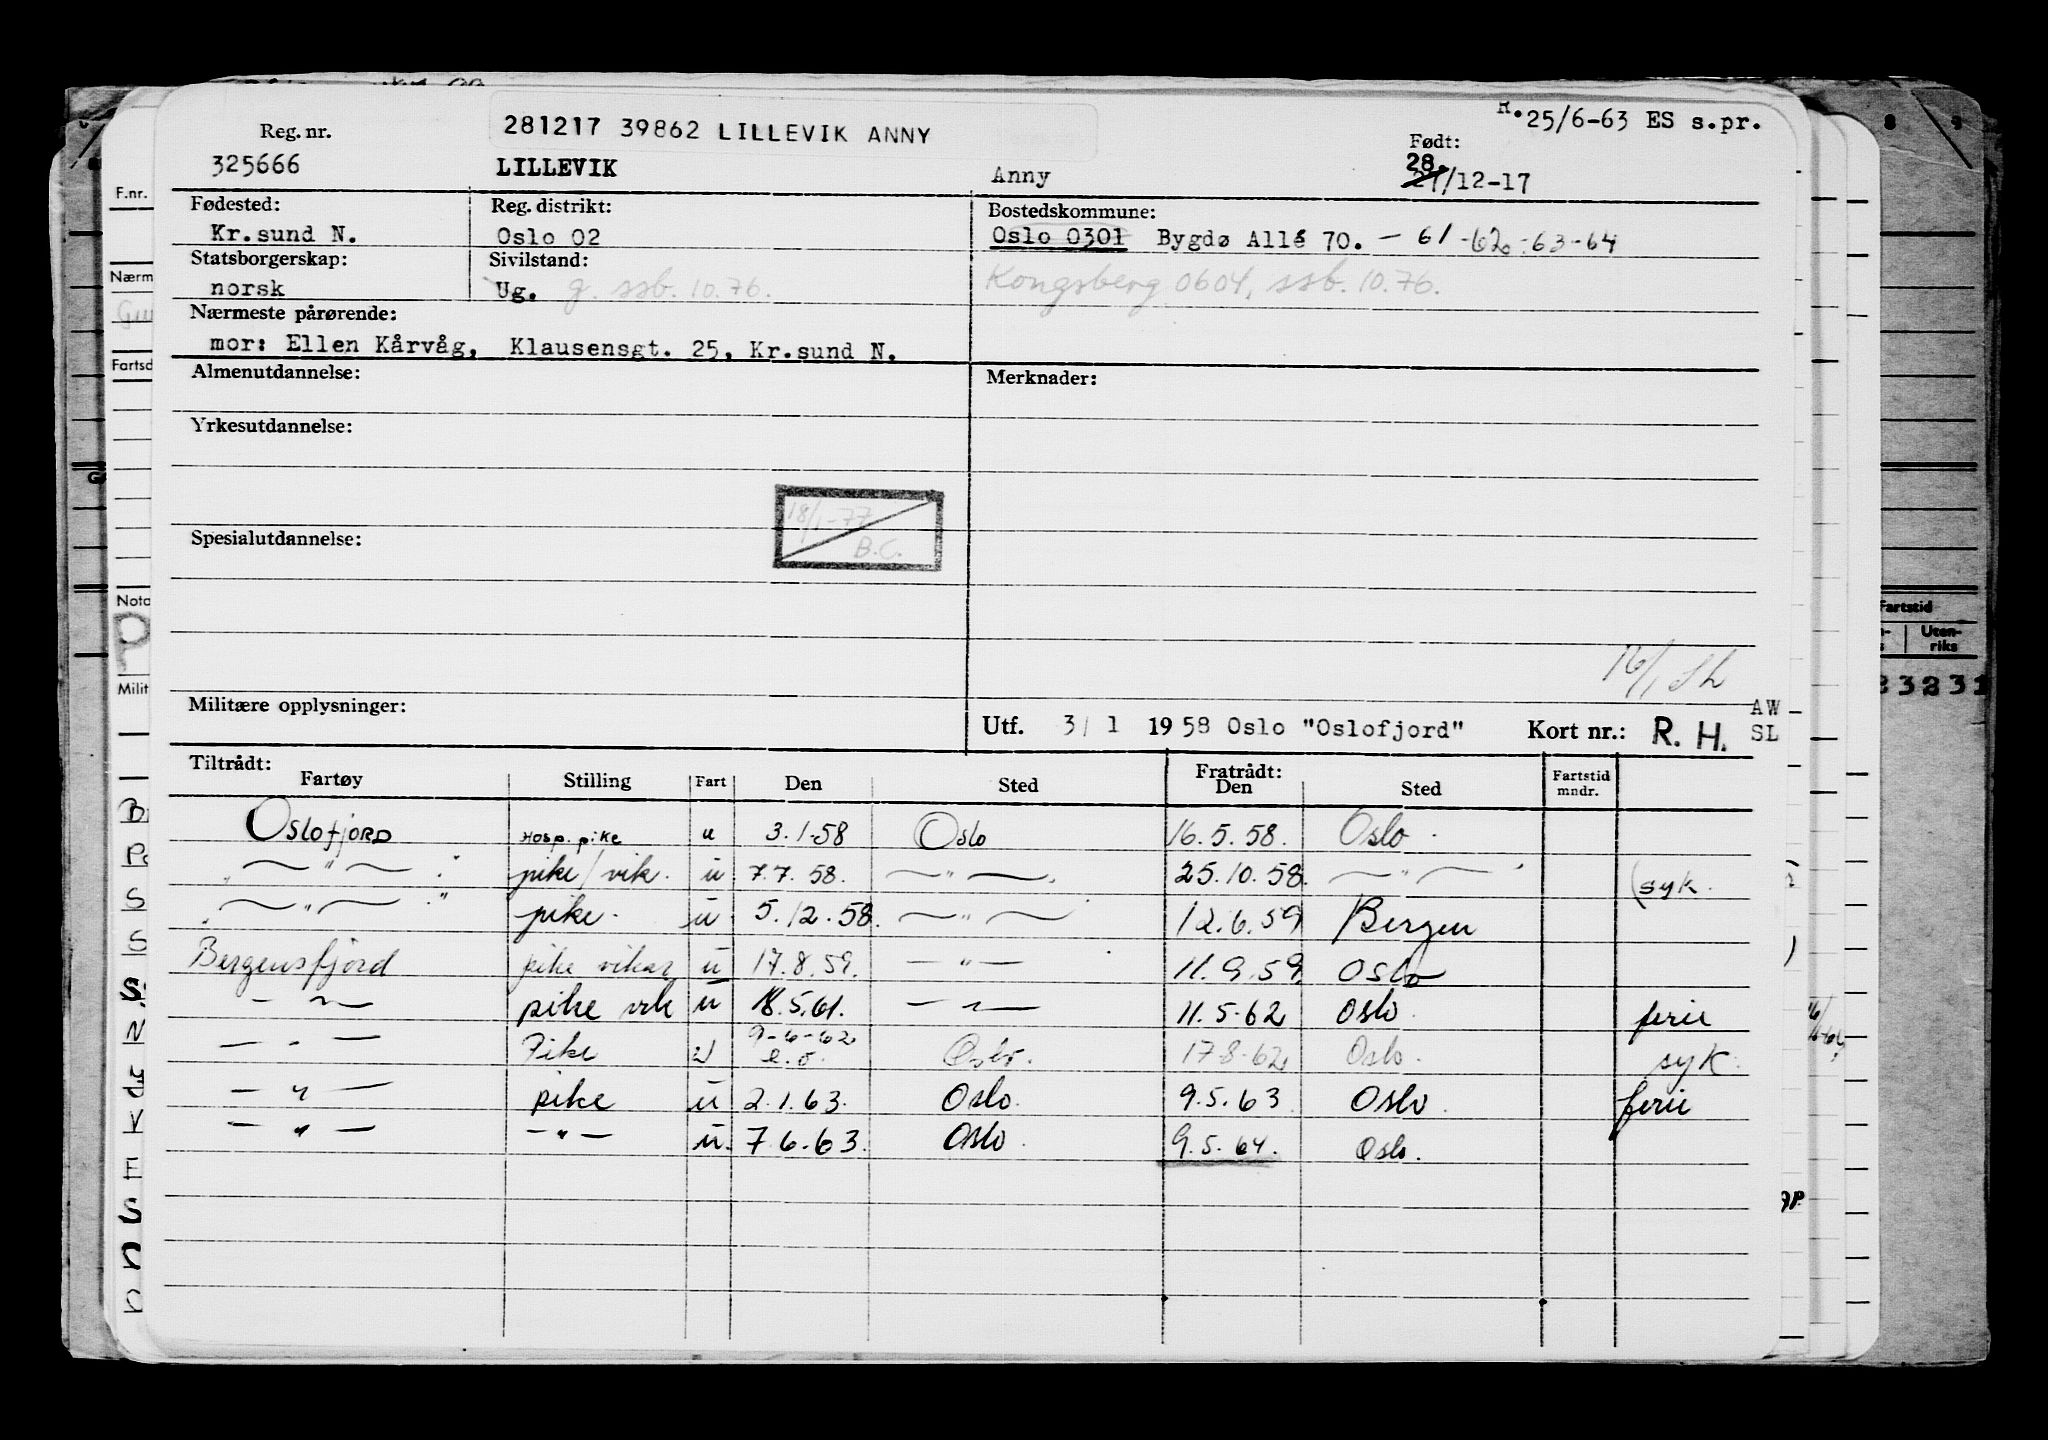 R. 25/6-63 ES s.pr.
281217 39862 LILLEVIK ANNY
Reg. nr. Født:
325666 LILLEVIK Anny 28. 27/12-17
Fødested: Reg. distrikt: Bostedskommune:
Kr.sund N. Oslo 02 Oslo 0301 Bygdø Allé 70. - 61 -62 -63-64
Statsborgerskap: Sivilstand: Kongsberg 0604, ssb. 10.76.
norsk Ug. g. ssb. 10.76.
Nærmeste pårørende:
mor: Ellen Kårvåg, Klausensgt. 25, Kr.sund N.
Almenutdannelse: Merknader:
Yrkesutdannelse:
18/1-77
B.C.
Spesialutdannelse:
16/1
Militære opplysninger:
AW
Utf. 3/ 1 1958 Oslo "Oslofjord" Kort nr.: R. H. SL
Tiltrådt: Fratrådt:
Fartøy Stilling Fart Den Sted Den Sted Fartstid mndr.
Oslofjord Hosp. pike u 3.1-58 Oslo 16.5.58. Oslo.
— " — pike/vik. u 7.7.58. — " — 25.10.58. — " — (syk.
— " — pike. u 5.12.58. — " — 12.6.59 Bergen
Bergensfjord pike vikar u 17.8.59. — " — 11.9.59. Oslo
— " — pike vik u 18.5.61. — " — 11.5-62 Oslo ferie
— " — Pike u 9-6-62 Oslo. 17-8-62 Oslo. syk.
— " — pike u 2.1.63. Oslo. 9.5.63 Oslo ferie
— " — — " — u. 7.6.63. Oslo. 9.5.64. Oslo.
F.nr.
Nærm
Fartsd
Nota
Milit
Fartstid
Uten-
riks
23231